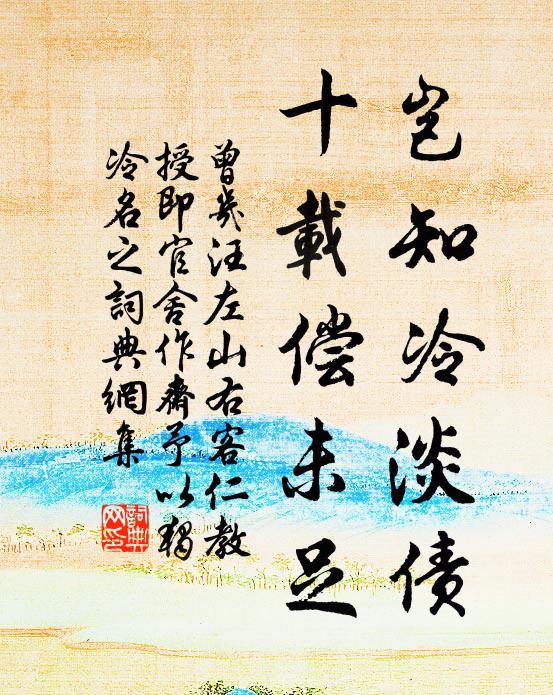 岂知冷淡债
十載偿未足
曾幾汪左山右客仁教
授即官舍作齋予以獨
冷名之詞典網集
詞典网印